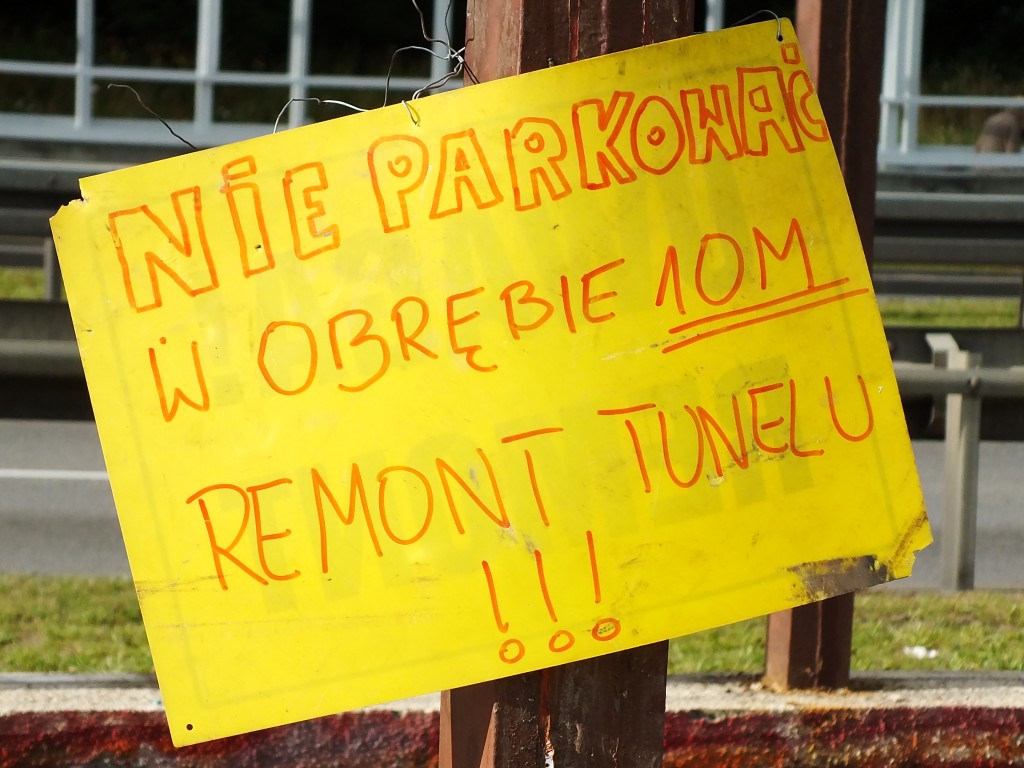 NIE PARKOWAĆ
W OBRĘBIE 10M
REMONT TUNELU
!!!